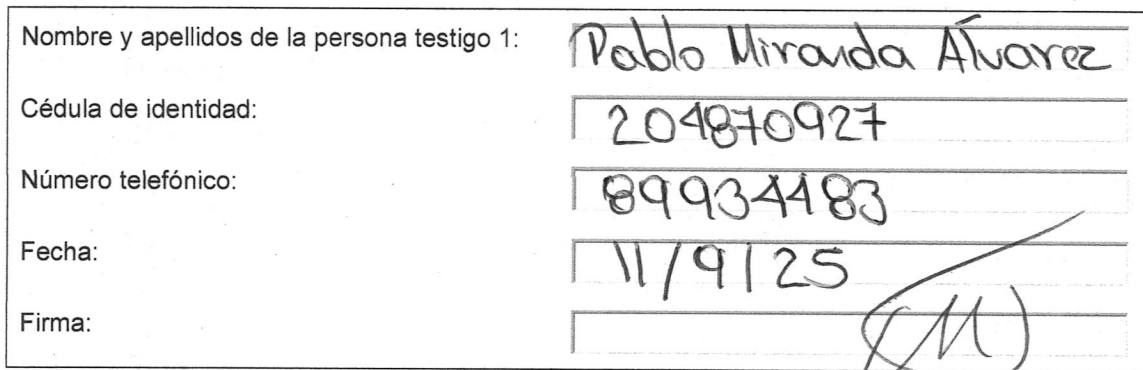 Nombre y apellidos de la persona testigo 1: Pablo Miranda Álvarez
Cédula de identidad: 204870927
Número telefónico: 89934483
Fecha: 11/9/25
Firma: